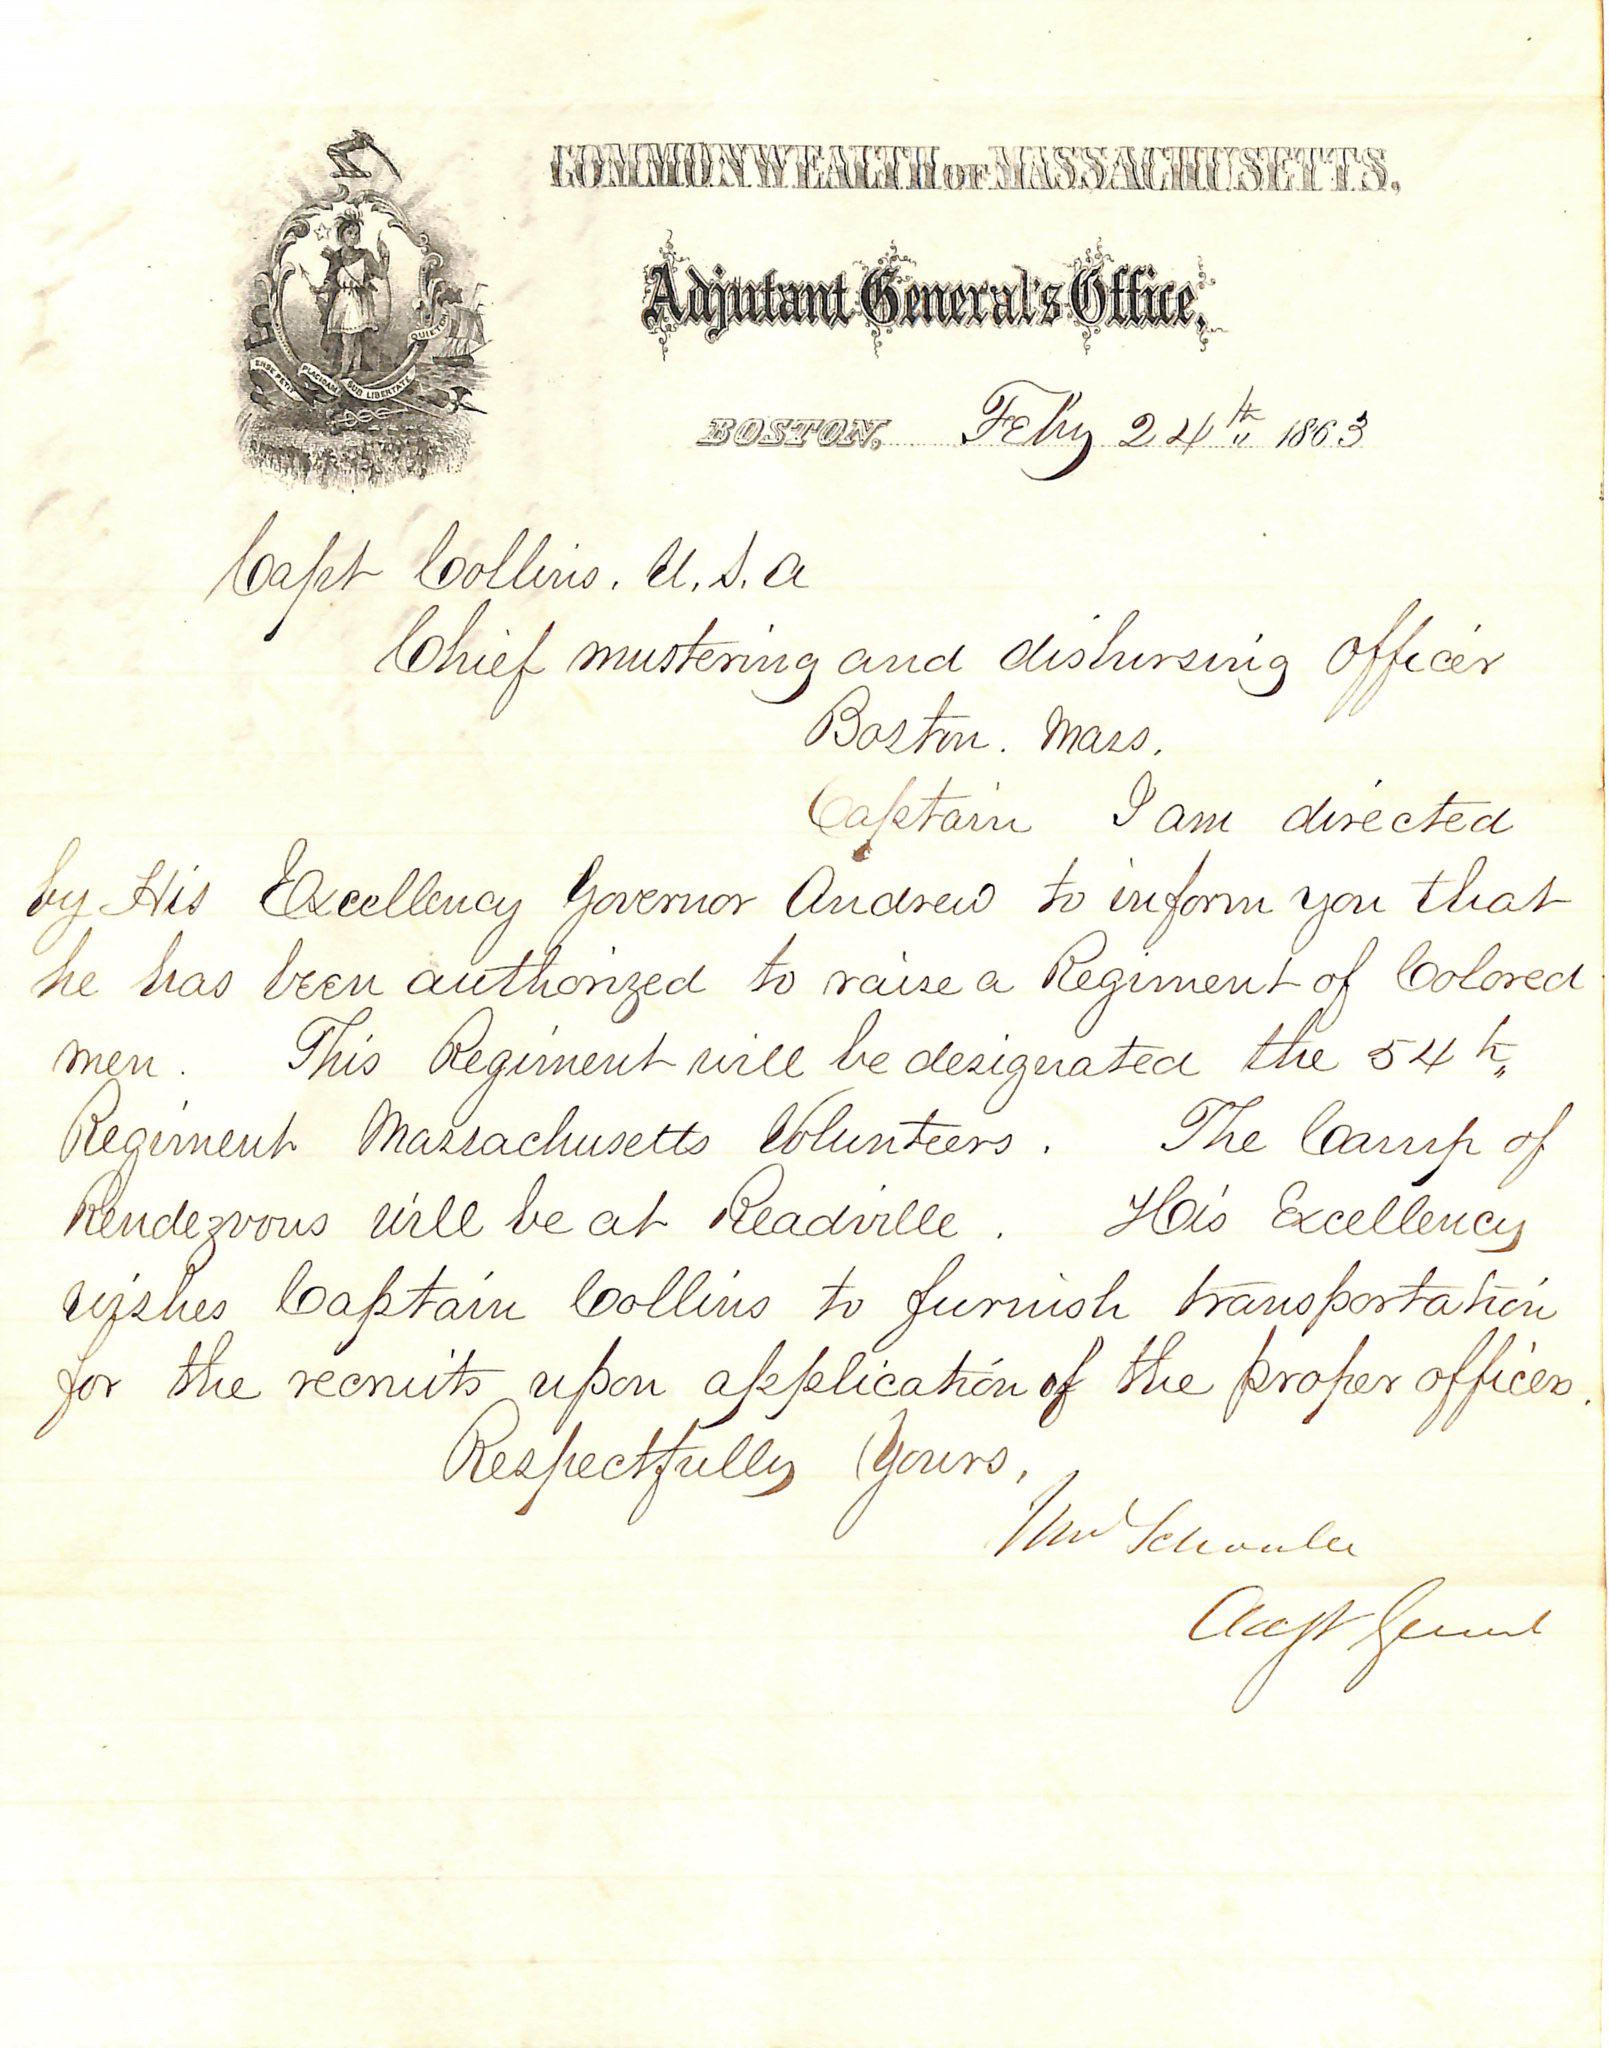 COMMONWEALTH OF MASSACHUSETTS.
Adjutant General's Office,
ENSE PETIT PLACIDAM SUB LIBERTATE QUIETEM
BOSTON, Feby 24th 1863
Capt Collins. U.S.A
Chief mustering and disbursing officer
Boston. Mass.
Captain I am directed
by His Excellency Governor Andrew to inform you that
he has been authorized to raise a Regiment of Colored
men. This Regiment will be designated the 54th
Regiment Massachusetts Volunteers. The Camp of
Rendezvous will be at Readville. His Excellency
wishes Captain Collins to furnish transportation
for the recruits upon application of the proper officers.
Respectfully Yours,
Wm Schouler
Adjt Genl